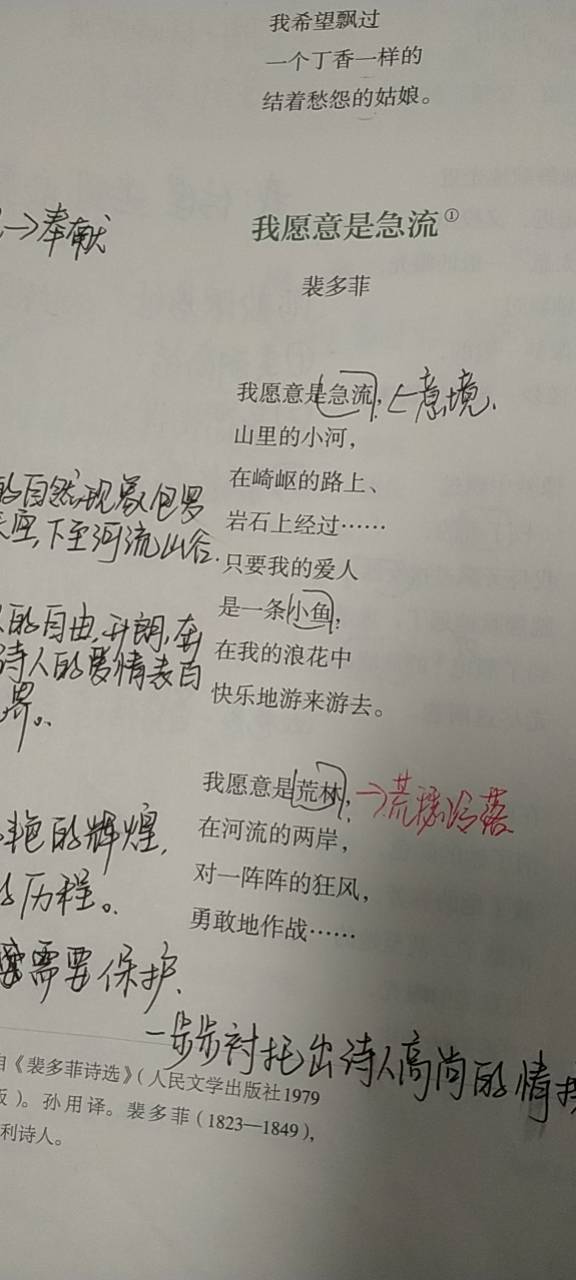 我希望飘过
一个丁香一样的
结着愁怨的姑娘。
→奉献
我愿意是急流①
裴多菲
我愿意是急流，←意境、
山里的小河，
在崎岖的路上、
的自然现象包罗
岩石上经过……
下至河流山谷.
只要我的爱人
是一条小鱼，
的自由,开朗,奔
在我的浪花中
诗人的爱情表白
快乐地游来游去。
界。
我愿意是荒林，→荒
在河流的两岸，
艳的辉煌,
对一阵阵的狂风，
历程。
勇敢地作战……
需要保护、
一步步衬托出诗人高尚的情
自《裴多菲诗选》（人民文学出版社1979
版）。孙用译。裴多菲（1823—1849），
利诗人。